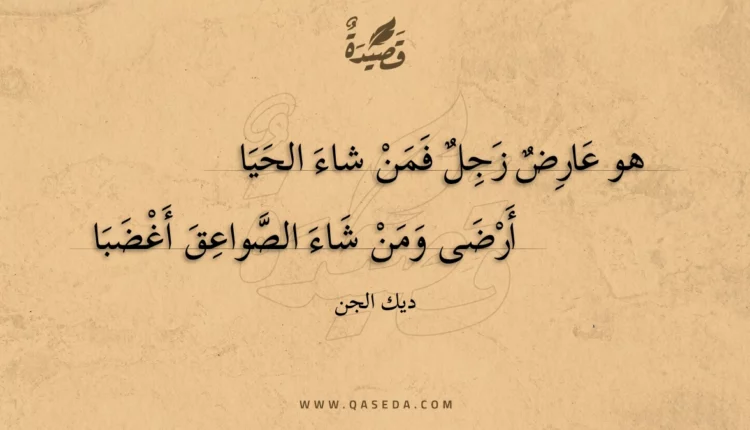 قَصِيْدَةٌ
هو عَارِضٌ زَجِلٌ فَمَنْ شاءَ الحَيَا
أَرْضَى وَمَنْ شَاءَ الصَّواعِقَ أَغْضَبَا
ديك الجن
WWW.QASEDA.COM